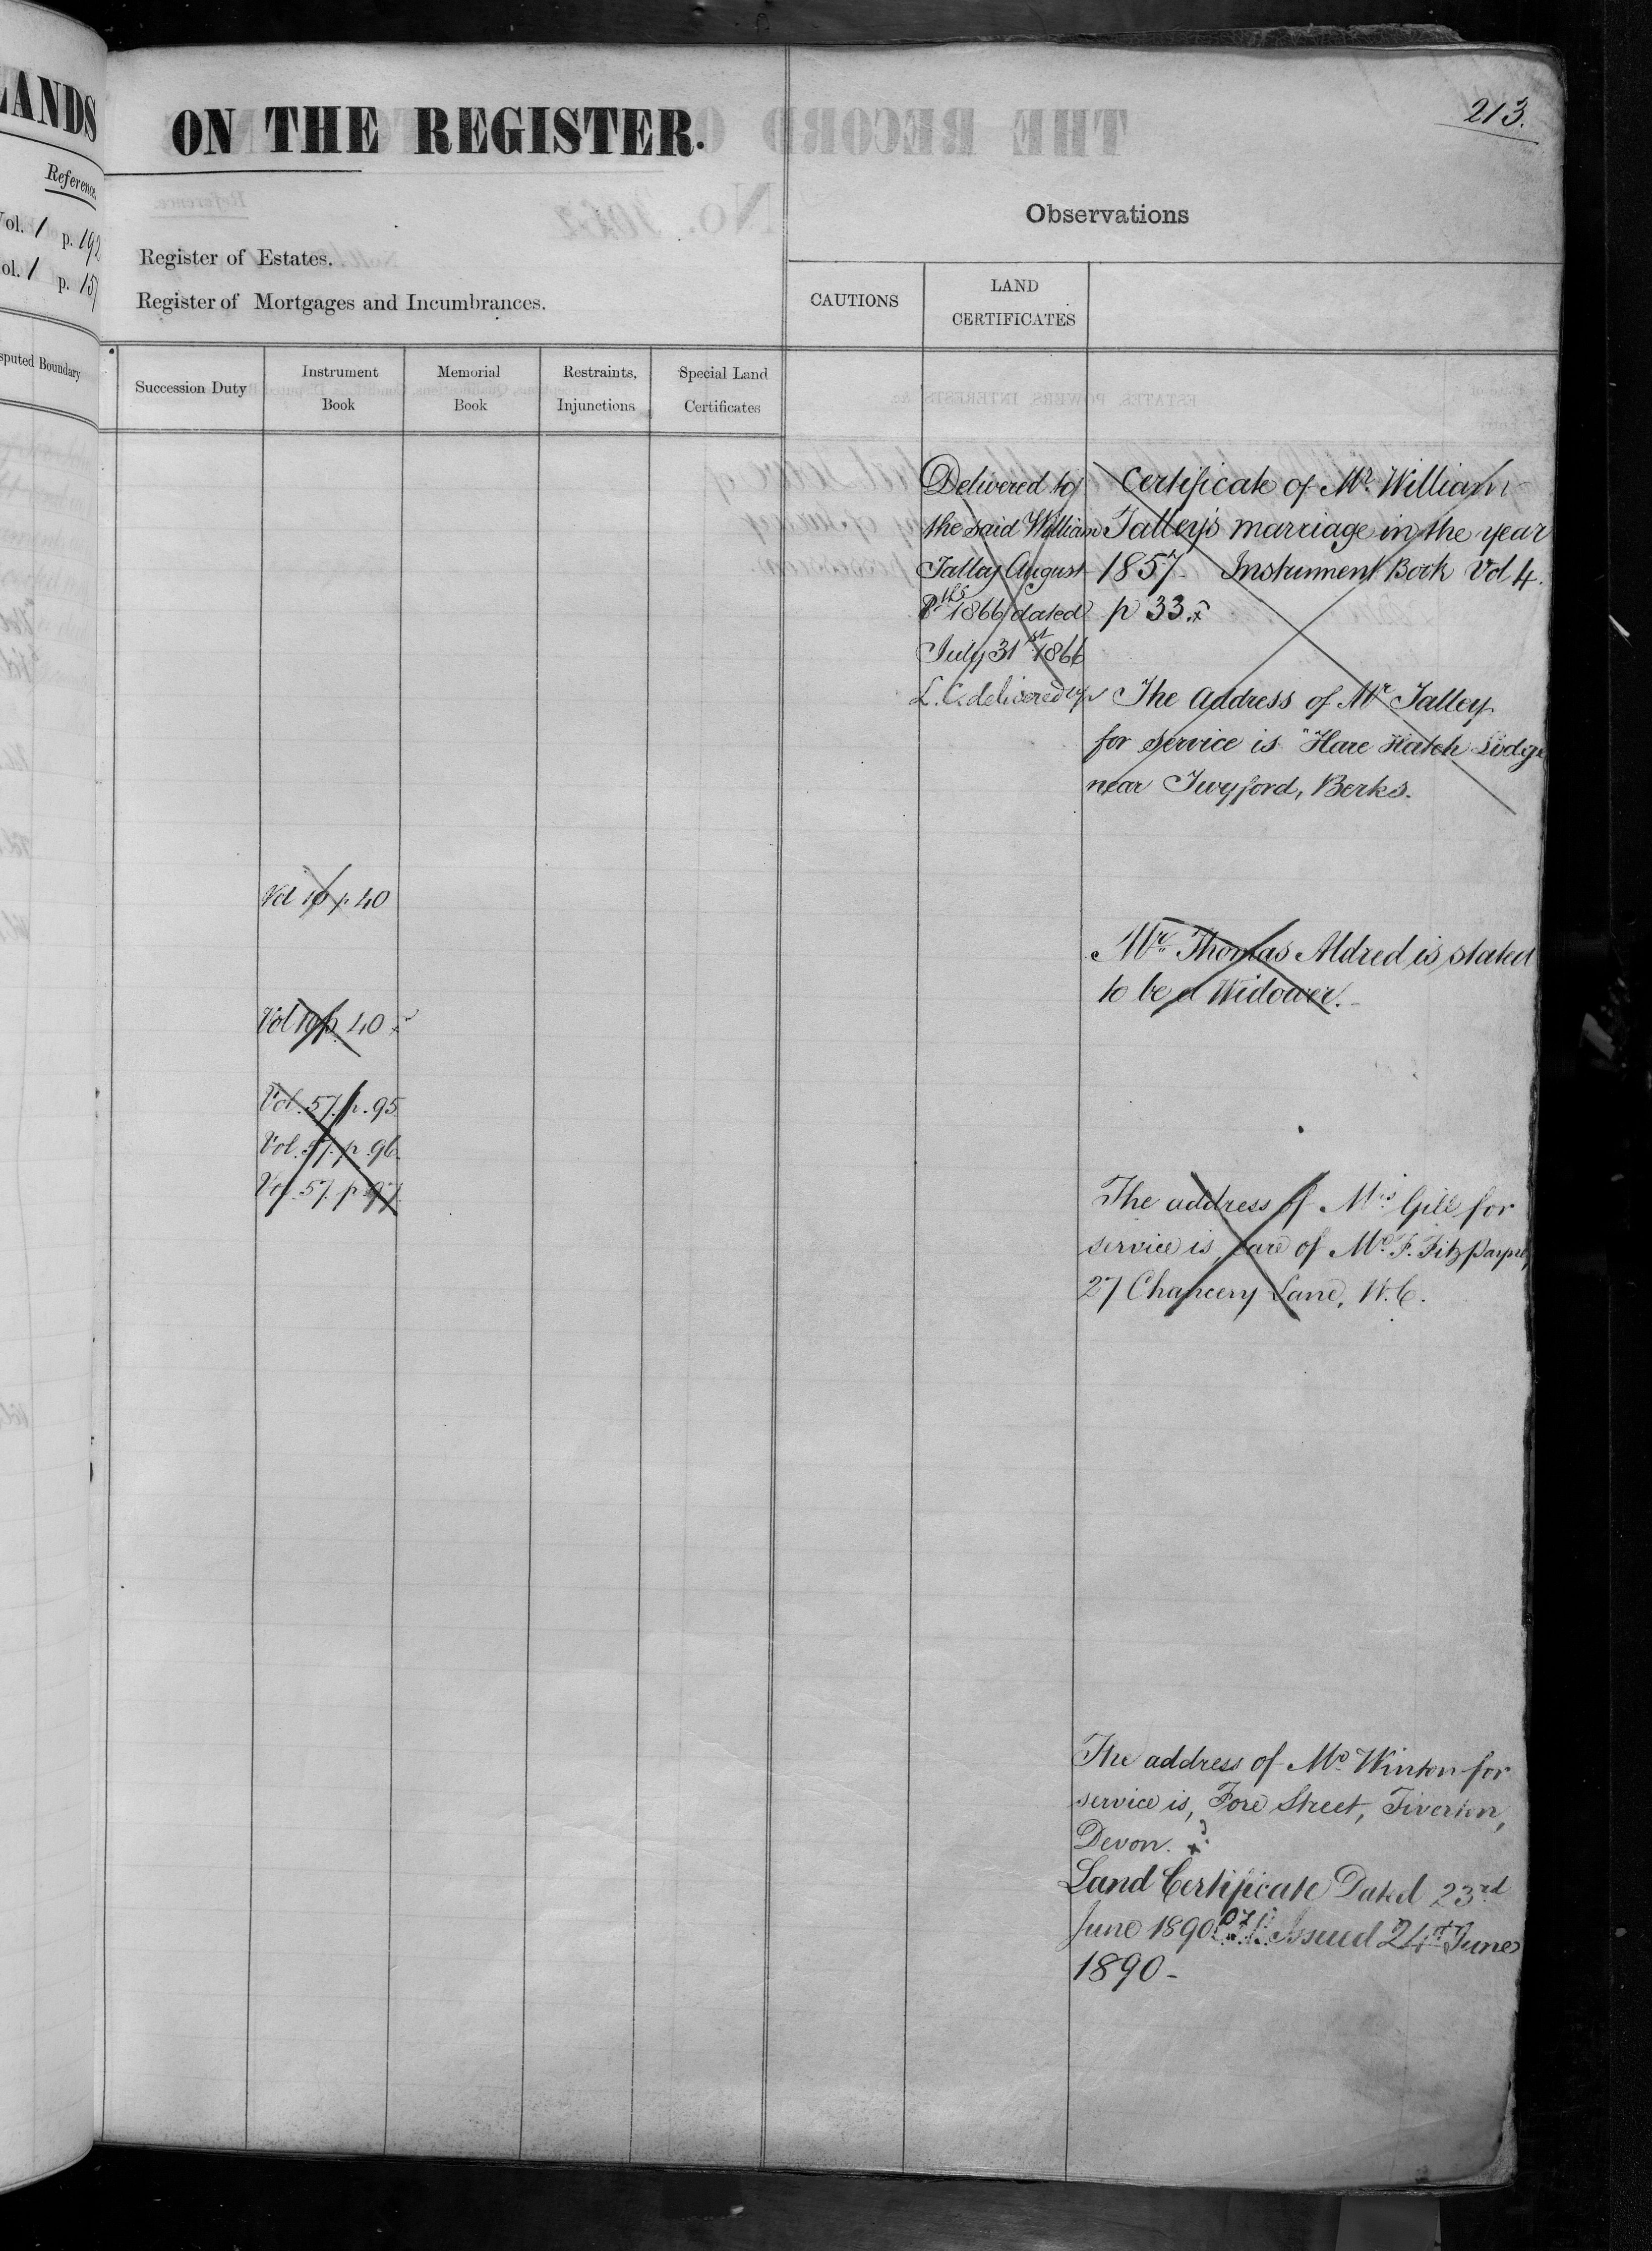 LANDS
Reference.
Vol. 1 p. 192
Vol. 1 p. 157
Disputed Boundary
ON THE REGISTER.
213.
Register of Estates.
Register of Mortgages and Incumbrances.
Observations
CAUTIONS
LAND
CERTIFICATES
Succession Duty
Instrument
Book
Memorial
Book
Restraints,
Injunctions
Special Land
Certificates
Delivered to
the said William
Talley August
8th 1866 dated
July 31st 1866
L. C. delivered up
Certificate of Mr. William
Talley's marriage in the year
1857 - Instrument Book Vol 4.
p 33.
The address of Mr Talley
for service is "Hare Hatch Lodge
near Twyford, Berks.
Vol 10 p. 40
Mr. Thomas Aldred is stated
to be a Widower. -
Vol 10 p. 40
Vol. 57. p. 95
Vol. 57. p. 96.
Vol. 57. p. 97.
The address of Mrs. Gill for
service is, care of Mr. F. Fitz Payne,
27 Chancery Lane, W.C.
The address of Mr. Winton for
service is, Fore Street, Tiverton,
Devon.
Land Certificate Dated 23rd
June 1890 Issued 24th June
1890 -